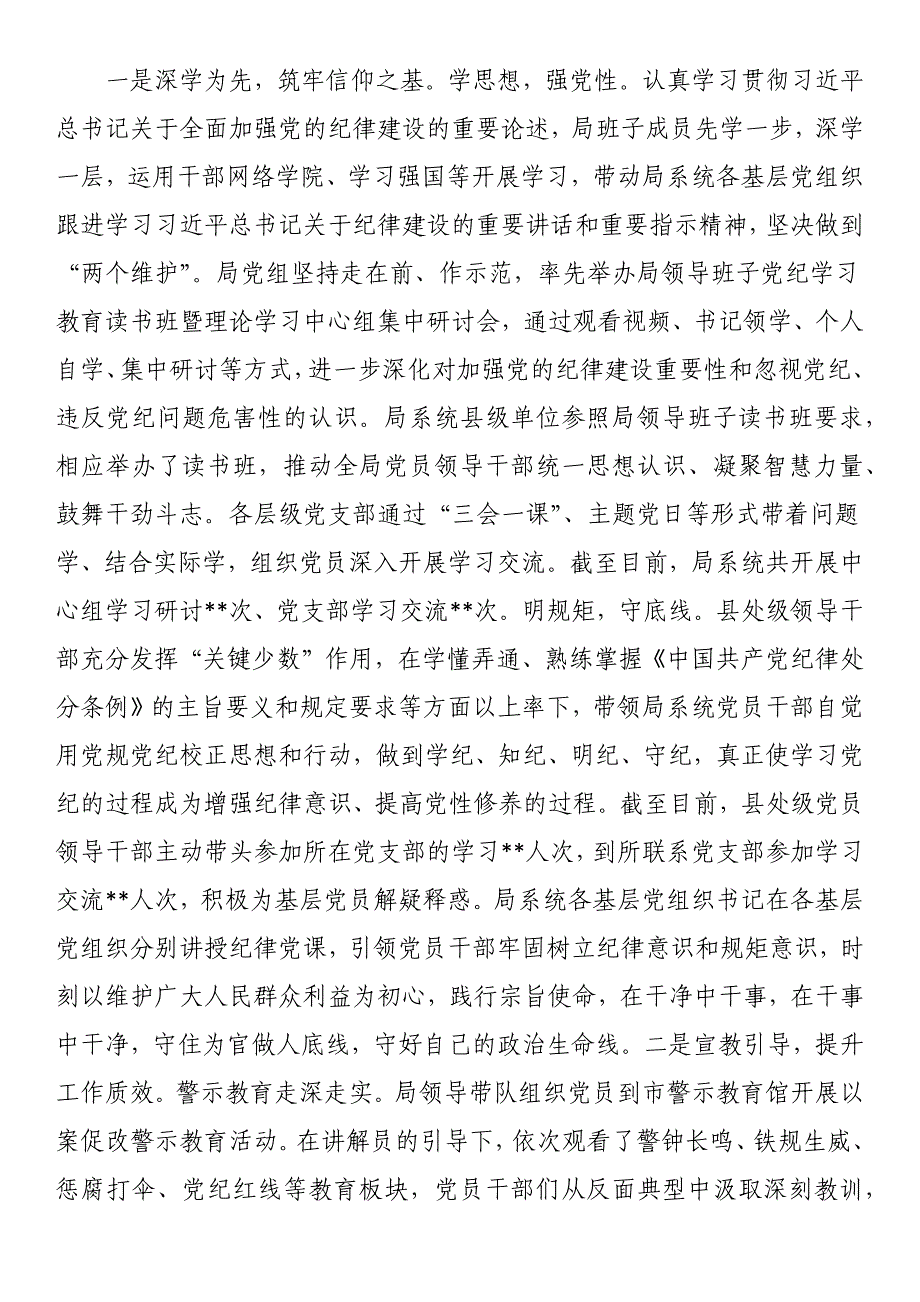 一是深学为先，筑牢信仰之基。学思想，强党性。认真学习贯彻习近平
总书记关于全面加强党的纪律建设的重要论述，局班子成员先学一步，深学
一层，运用干部网络学院、学习强国等开展学习，带动局系统各基层党组织
跟进学习习近平总书记关于纪律建设的重要讲话和重要指示精神，坚决做到
“两个维护”。局党组坚持走在前、作示范，率先举办局领导班子党纪学习
教育读书班暨理论学习中心组集中研讨会，通过观看视频、书记领学、个人
自学、集中研讨等方式，进一步深化对加强党的纪律建设重要性和忽视党纪、
违反党纪问题危害性的认识。局系统县级单位参照局领导班子读书班要求，
相应举办了读书班，推动全局党员领导干部统一思想认识、凝聚智慧力量、
鼓舞干劲斗志。各层级党支部通过“三会一课”、主题党日等形式带着问题
学、结合实际学，组织党员深入开展学习交流。截至目前，局系统共开展中
心组学习研讨**次、党支部学习交流**次。明规矩，守底线。县处级领导干
部充分发挥“关键少数”作用，在学懂弄通、熟练掌握《中国共产党纪律处
分条例》的主旨要义和规定要求等方面以上率下，带领局系统党员干部自觉
用党规党纪校正思想和行动，做到学纪、知纪、明纪、守纪，真正使学习党
纪的过程成为增强纪律意识、提高党性修养的过程。截至目前，县处级党员
领导干部主动带头参加所在党支部的学习**人次，到所联系党支部参加学习
交流**人次，积极为基层党员解疑释惑。局系统各基层党组织书记在各基层
党组织分别讲授纪律党课，引领党员干部牢固树立纪律意识和规矩意识，时
刻以维护广大人民群众利益为初心，践行宗旨使命，在干净中干事，在干事
中干净，守住为官做人底线，守好自己的政治生命线。二是宣教引导，提升
工作质效。警示教育走深走实。局领导带队组织党员到市警示教育馆开展以
案促改警示教育活动。在讲解员的引导下，依次观看了警钟长鸣、铁规生威、
惩腐打伞、党纪红线等教育板块，党员干部们从反面典型中汲取深刻教训，